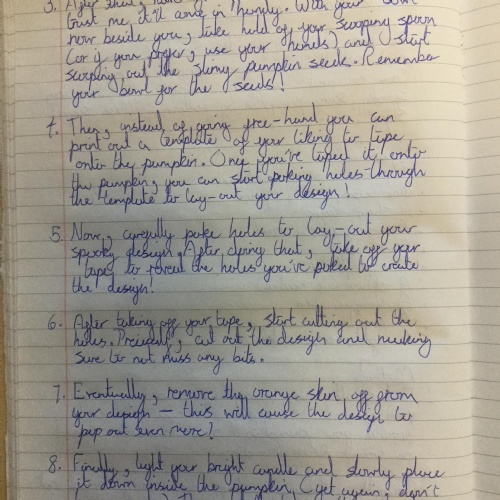 3. After that,
Trust me it'll come in handy. With your bowl
now beside you, take hold of your scooping spoon
(or if you prefer, use your hands) and start
scooping out the slimy pumpkin seeds. Remember
your bowl for the seeds!
4. Then, instead of going free-hand you can
print out a template of your liking to tape
onto the pumpkin. Once you've taped it onto
the pumpkin, you can start poking holes through
the template to lay-out your design!
5. Now, carefully poke holes to lay-out your
spooky design. After doing that, take off your
tape to reveal the holes you've poked to create
the design!
6. After taking off your tape, start cutting out the
holes. cut out the design and making
sure to not miss any bits.
7. Eventually, remove the orange skin off from
your design — this will cause the design to
pop out even more!
8. Finally, light your bright candle and slowly place
it down inside the pumpkin (yet again, don't